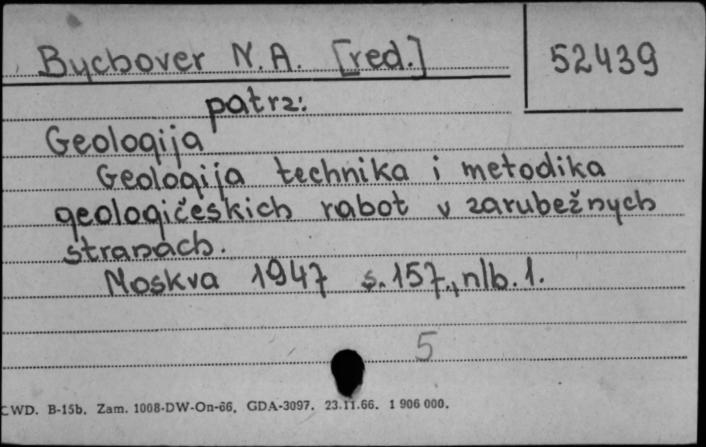 Bychover N.A. [red.]
52439
patrz:
Geologija
Geologija technika i metodika
geologičeskich rabot v zarubežnych
stranach.
Moskva 1947 s. 157, nlb. 1.
5
CWD. B-15b. Zam. 1008-DW-On-66. GDA-3097. 23.11.66. 1 906 000.